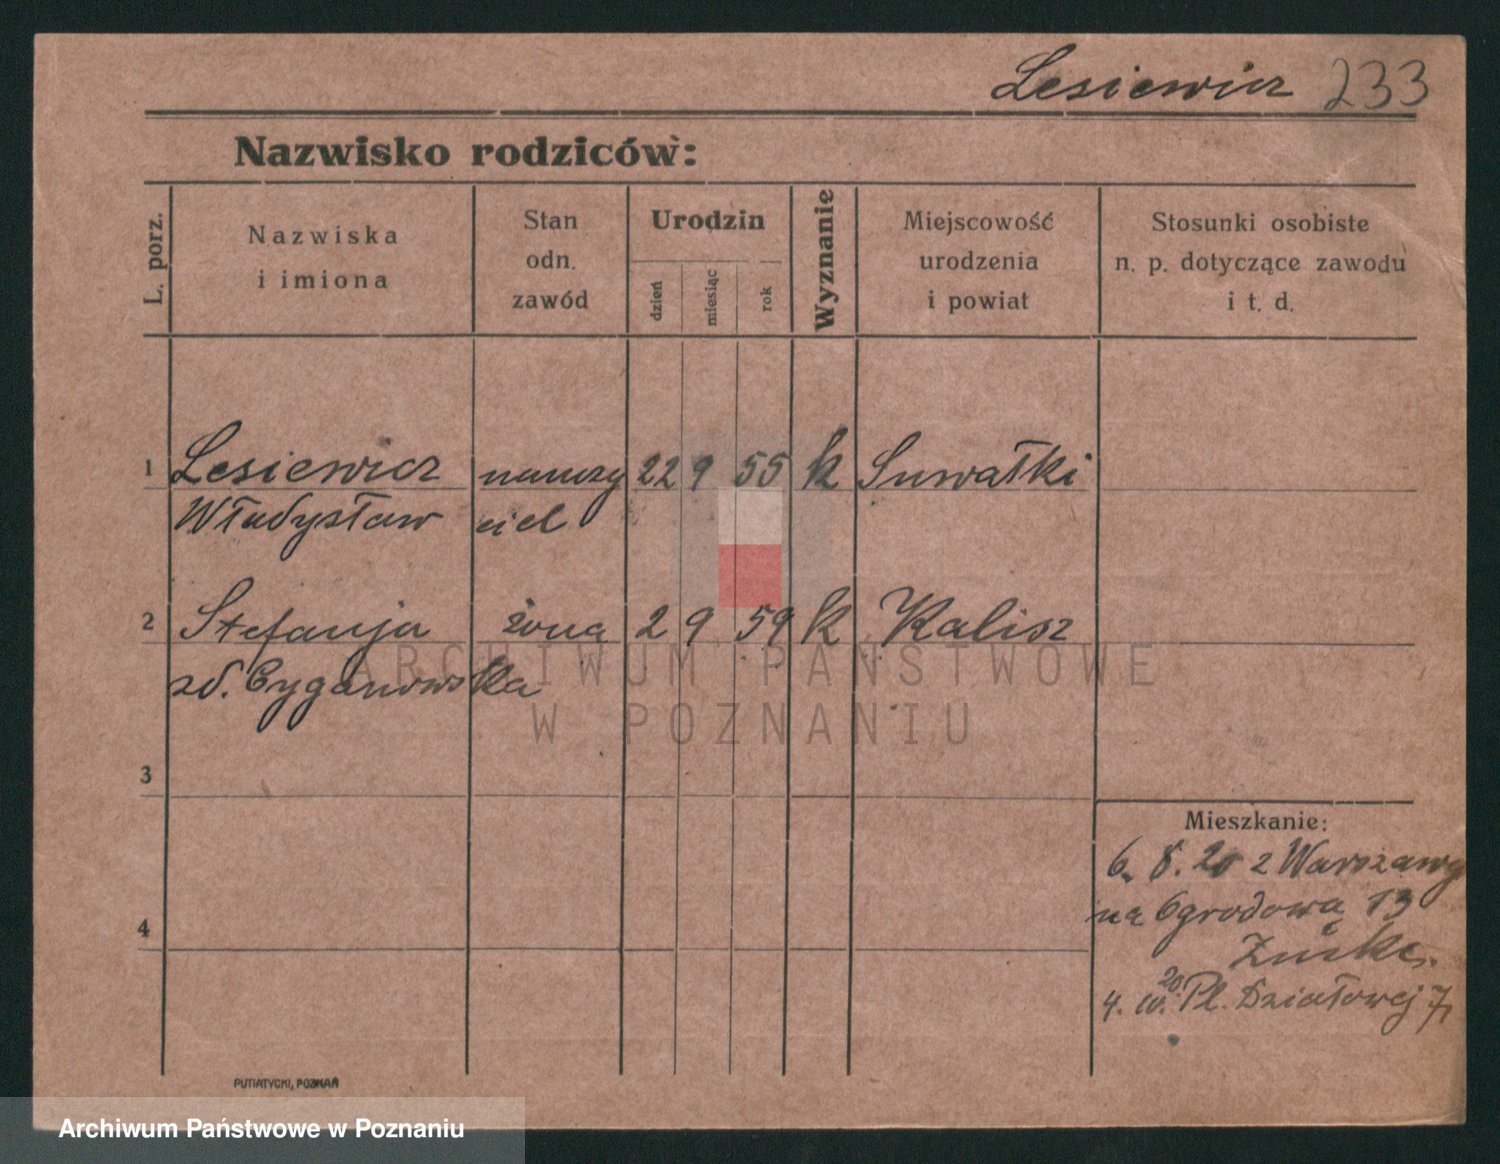 Lesiewicz 233
Nazwisko rodziców:
L. porz.
Nazwiska
i imiona
Stan
odn.
zawód
Urodzin
dzień
miesiąc
rok
Wyznanie
Miejscowość
urodzenia
i powiat
Stosunki osobiste
n. p. dotyczące zawodu
i t. d.
1 Lesiewicz nauczy 22 9 55 k Suwałki
Władysław ciel
2 Stefanja żona 2 9 59 k Kalisz
zd. Cyganowska
ARCHIWUM PAŃSTWOWE
W POZNANIU
3
4
Mieszkanie:
6. 8. 20 z Warszawy
na Ogrodową 13
20
4. Pl. Działowej 7,
PUTIATYCKI, POZNAŃ
Archiwum Państwowe w Poznaniu